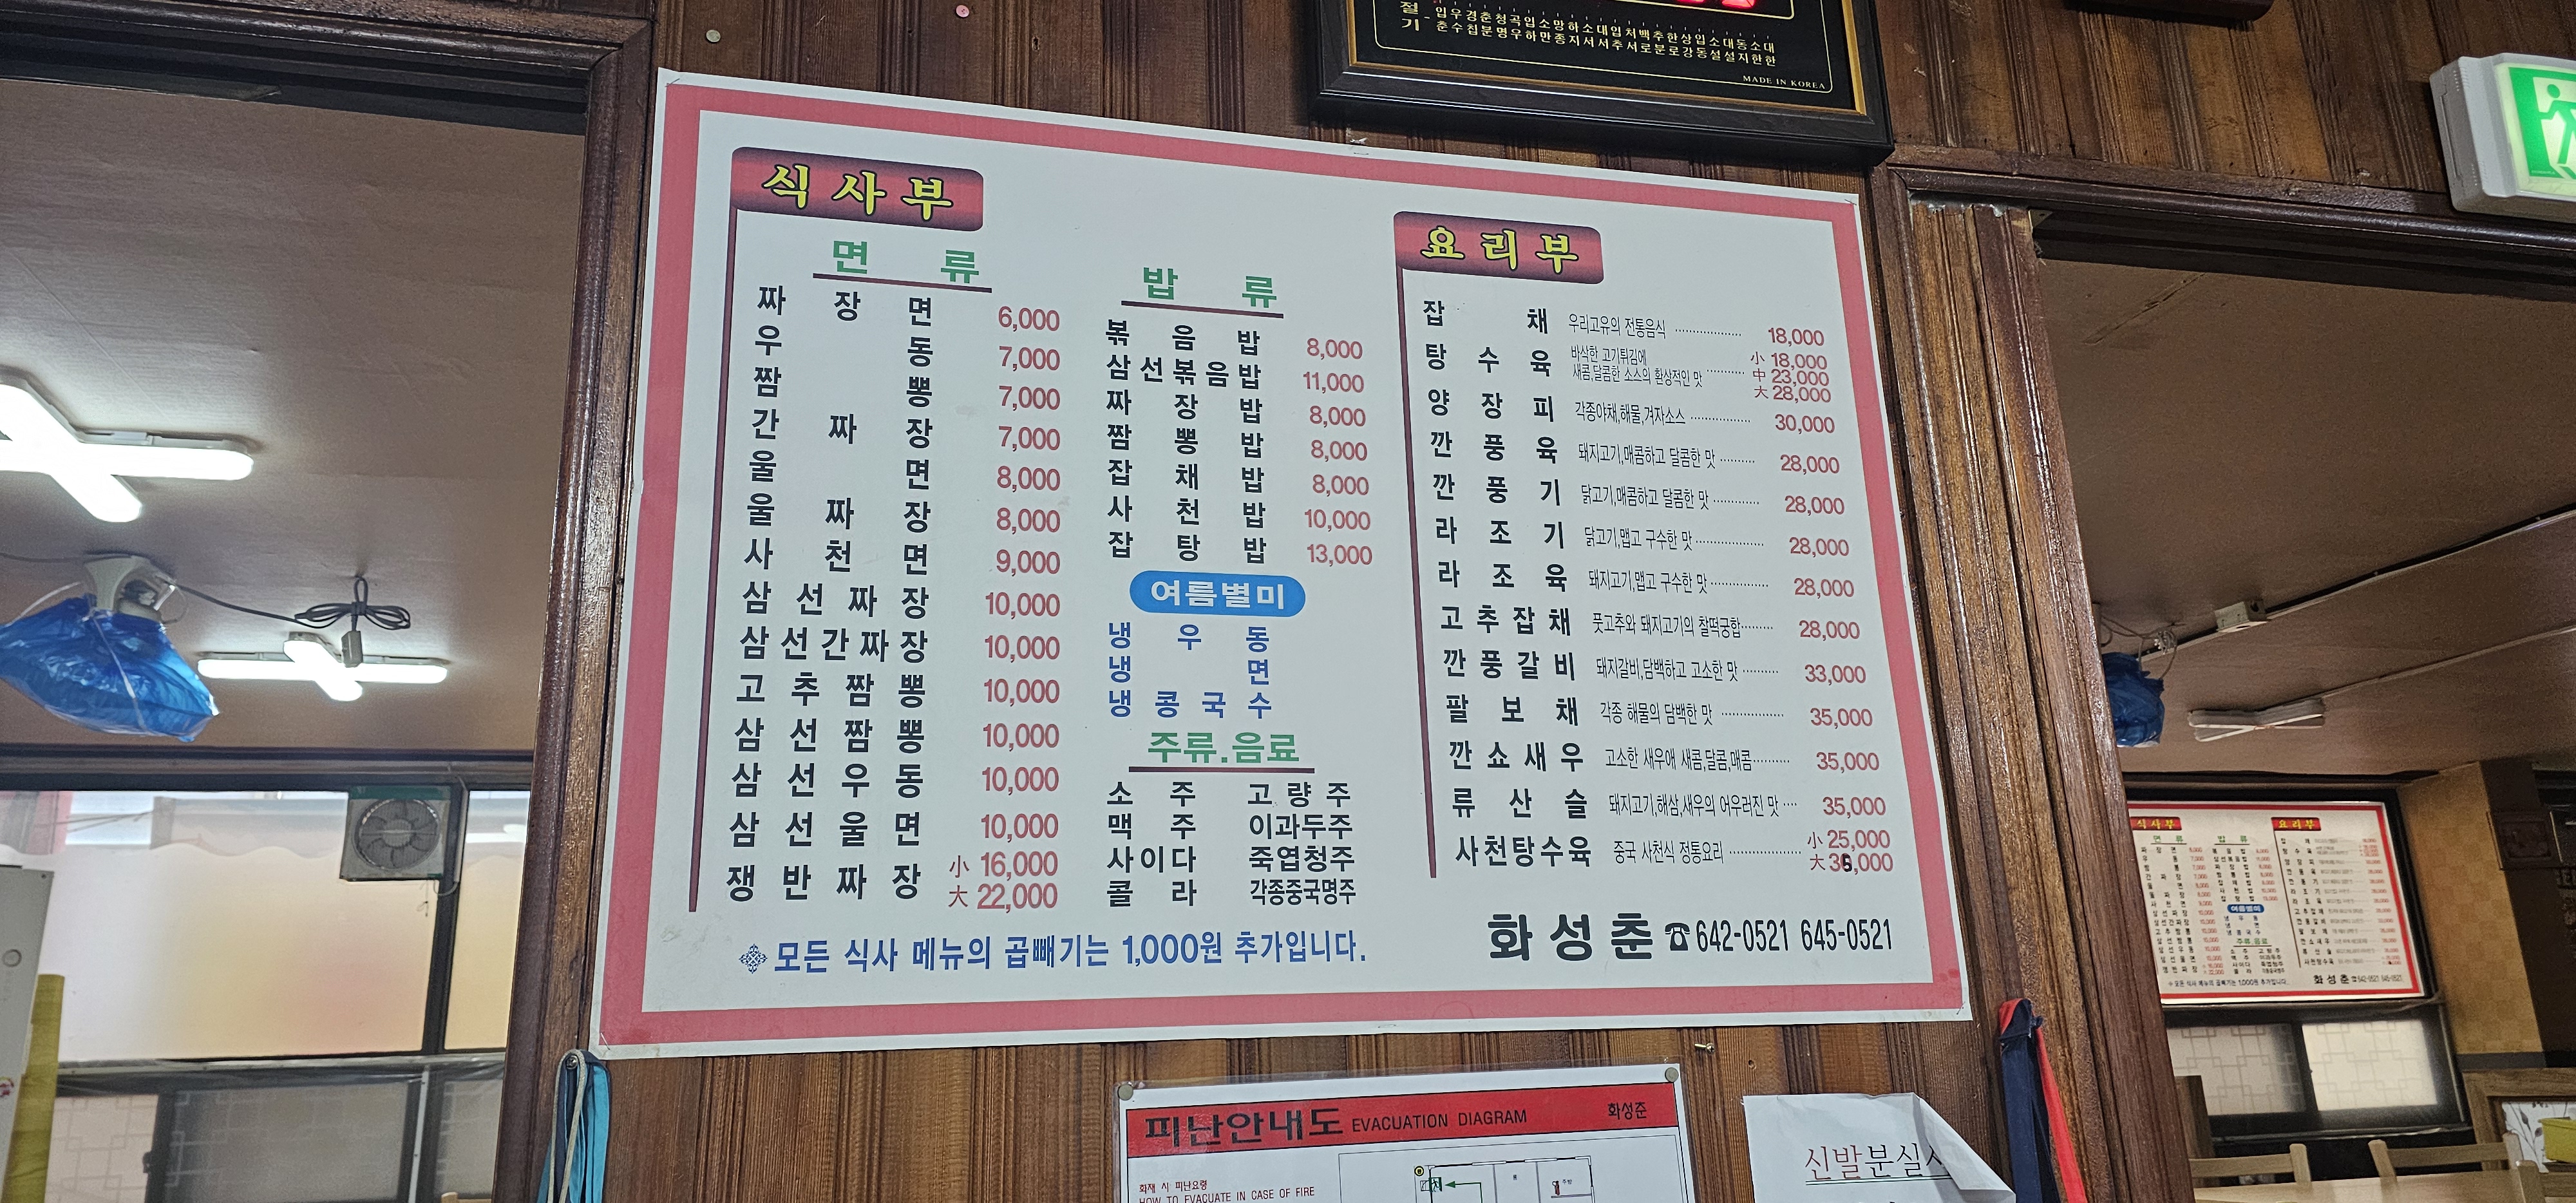 절 입우경춘청곡입소망하소대입처백추한상입소대동소대
기 춘수칩분명우하만종지서서추서로분로강동설설지한한
MADE IN KOREA
식사부
면 류
짜 장 면 6,000
우 동 7,000
짬 뽕 7,000
간 짜 장 7,000
울 면 8,000
울 짜 장 8,000
사 천 면 9,000
삼 선 짜 장 10,000
삼 선 간 짜 장 10,000
고 추 짬 뽕 10,000
삼 선 짬 뽕 10,000
삼 선 우 동 10,000
삼 선 울 면 10,000
쟁 반 짜 장 小 16,000
大 22,000
밥 류
볶 음 밥 8,000
삼 선 볶 음 밥 11,000
짜 장 밥 8,000
짬 뽕 밥 8,000
잡 채 밥 8,000
사 천 밥 10,000
잡 탕 밥 13,000
여름별미
냉 우 동
냉 면
냉 콩 국 수
주류.음료
소 주 고 량 주
맥 주 이과두주
사이다 죽엽청주
콜 라 각종중국명주
요리부
잡 채 우리고유의 전통음식 18,000
탕 수 육 바삭한 고기튀김에 小 18,000
새콤,달콤한 소스의 환상적인 맛 中 23,000
大 28,000
양 장 피 각종야채,해물,겨자소스 30,000
깐 풍 육 돼지고기,매콤하고 달콤한 맛 28,000
깐 풍 기 닭고기,매콤하고 달콤한 맛 28,000
라 조 기 닭고기,맵고 구수한 맛 28,000
라 조 육 돼지고기,맵고 구수한 맛 28,000
고 추 잡 채 풋고추와 돼지고기의 찰떡궁합 28,000
깐 풍 갈 비 돼지갈비,담백하고 고소한 맛 33,000
팔 보 채 각종 해물의 담백한 맛 35,000
깐 쇼 새 우 고소한 새우애 새콤,달콤,매콤 35,000
류 산 슬 돼지고기,해삼,새우의 어우러진 맛 35,000
사천탕수육 중국 사천식 정통요리 小 25,000
大 35,000
모든 식사 메뉴의 곱빼기는 1,000원 추가입니다.
화성춘 ☎ 642-0521 645-0521
피난안내도 EVACUATION DIAGRAM 화성춘
화재 시 피난요령
HOW TO EVACUATE IN CASE OF FIRE
신발분실